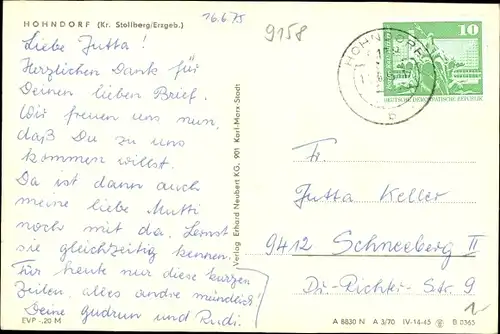 HOHNDORF (Kr. Stollberg/Erzgeb.)
16.6.75
9158
Liebe Jutta!
Herzlichen Dank für
Deinen lieben Brief.
Wir freuen uns nun,
daß Du zu uns
kommen willst.
Da ist dann auch
meine liebe Mutti
noch mit da. Lernst
sie gleichzeitig kennen.
Für heute nur diese kurzen
Zeilen, alles andre mündlich!
Deine Gudrun und Rudi.
EVP -,20 M
Verlag Erhard Neubert KG, 901 Karl-Marx-Stadt
HOHNDORF
b
10
DEUTSCHE DEMOKRATISCHE REPUBLIK
Fr.
Jutta Keller
9412 Schneeberg II
Dr.-Richter-Str. 9
A 8830 N A 3/70 IV-14-45 B 0365